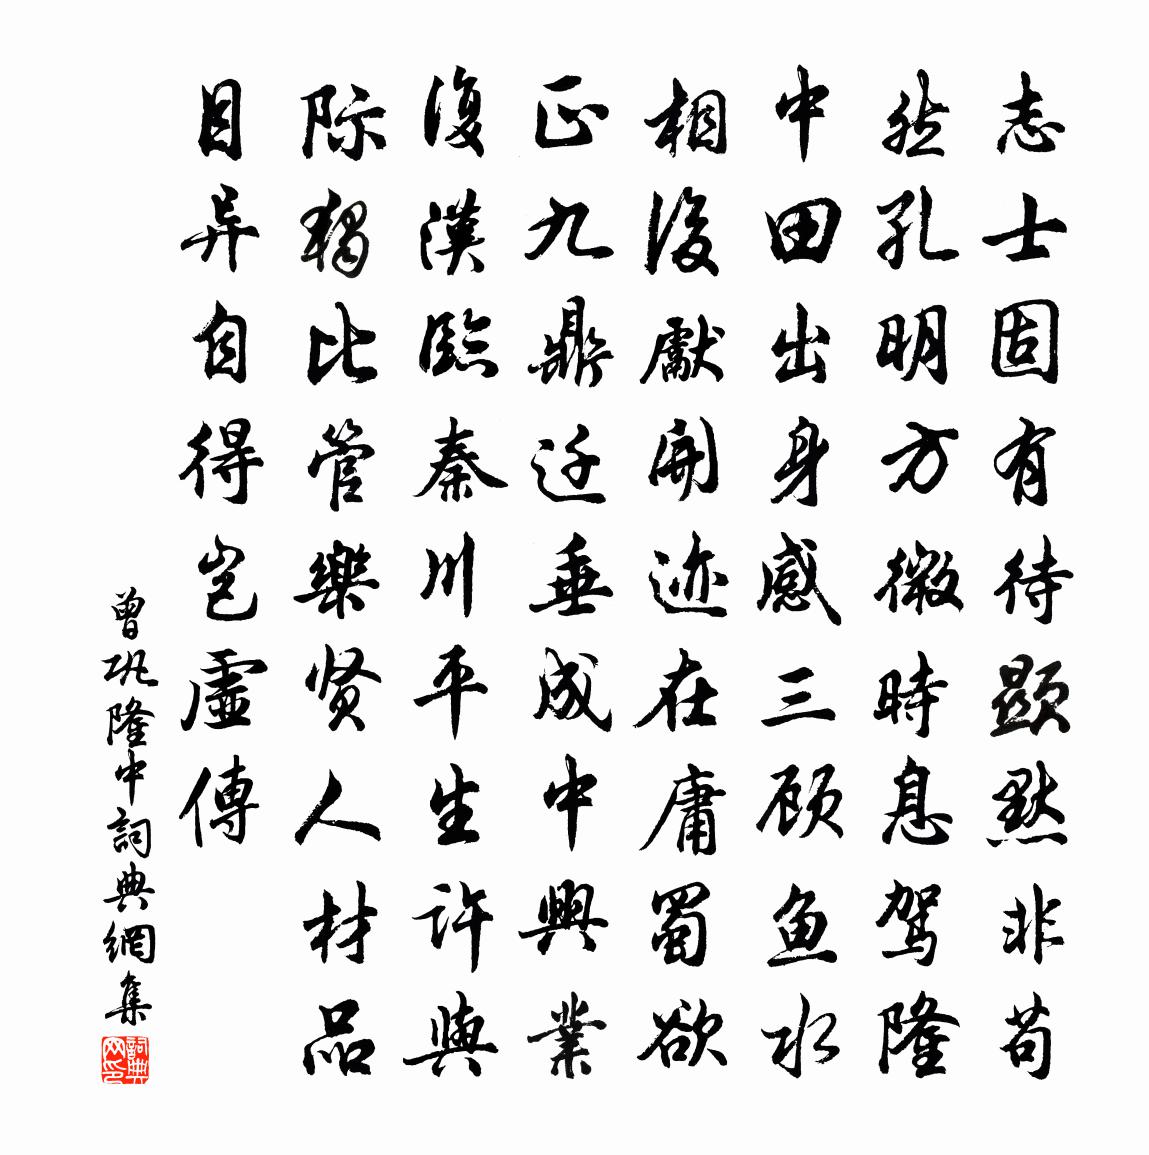 志士固有待顕默非苟
然孔明方微時息驾隆
中田出身感三顾鱼水
相後獻開迹在庸蜀欲
正九鼎迁垂成中興業
復漢臨秦川平生許與
际獨比管樂贤人材品
目异自得岂虚傳
曾巩隆中詞典網集
詞典网印